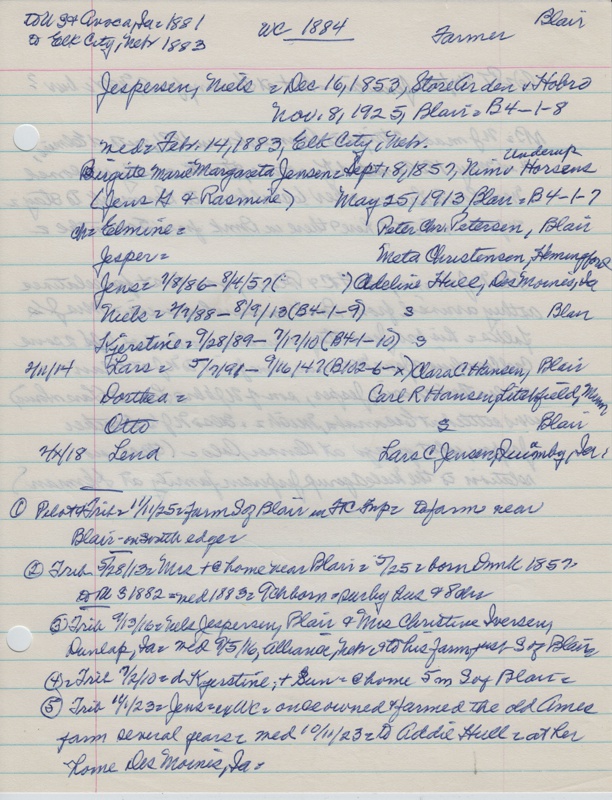 to US & Avoca, Ia = 1881
to Elk City, Nebr 1883
WC 1884
Farmer
Blair
Jespersen, Niels = Dec 16, 1853, StoreArden & Hobro
Nov. 8, 1925, Blair = B4-1-8
med = Feb. 14, 1883, Elk City, Nebr.
Birgitte Marie Margareta Jensen = Sept. 18, 1857, Nim Underup Horsens
(Jens H & Rasmine) May 25, 1913 Blair = B4-1-7
ch = Elmine = Peter Chr. Petersen, Blair
Jesper = Meta Christensen, Hemingford
Jens = 7/8/86 - 8/4/57 ( ) Adeline Hull, Des Moines, Ia
Niels = 2/7/88 - 8/9/13 (B4-1-9) s Blair
Kjerstine = 9/28/89 - 7/17/10 (B4-1-10) s
2/11/14 Lars = 5/7/91 - 9/16/47 (B102-6-x) Clara C Hansen, Blair
Dorthea = Carl R. Hansen, Litchfield, Minn
Otto s Blair
2/ /18 Lena Lars C Jensen, Quimby, Ia.
① Pilot & Trib = 11/11/25 = farm S of Blair in FC Twp = to farm near
Blair - on south edge =
② Trib 5/28/13 = Mrs + @ home near Blair = 5/25 = born Dmk 1857 =
to US 1882 = med 1883 = 9ch born = surby hus & 8ch =
③ Trib 9/13/16 = Niels Jespersen, Blair & Mrs Christine Iversen,
Dunlap, Ia = med 9/5/16, Alliance, Nebr = to his farm just S of Blair
④ = Trib 7/2/10 = d Kjerstine, + Sun = @ home 5 m S of Blair =
⑤ Trib 11/1/23 = Jens = ex WC = once owned & farmed the old Ames
farm several years = med 10/11/23 = to Addie Hull = at her
home Des Moines, Ia =